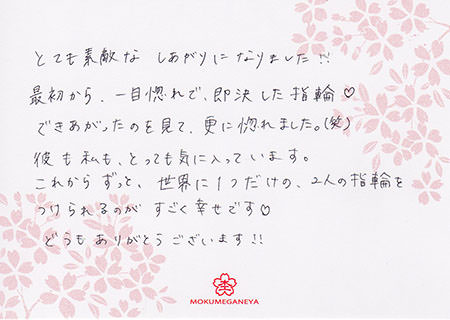 とても素敵な しあがりになりました!!
最初から、一目惚れで、即決した指輪♡
できあがったのを見て、更に惚れました。(笑)
彼も私も、とっても気に入っています。
これから ずっと、世界に1つだけの、2人の指輪を
つけられるのが すごく幸せです♡
どうもありがとうございます!!
杢
MOKUMEGANEYA